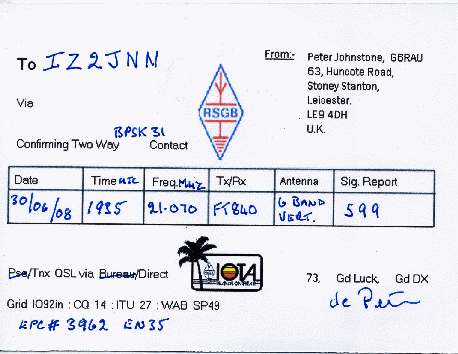 To IZ2JNN
From:- Peter Johnstone, G6RAU
63, Huncote Road,
Stoney Stanton,
Leicester.
LE9 4DH
U.K.
RSGB
Via
BPSK 31
Confirming Two Way Contact
Date Time UTC Freq. MHZ Tx/Rx Antenna Sig. Report
30/06/08 1935 21.070 FT840 6 BAND VERT. 599
IOTA
Pse/Tnx QSL via Bureau/Direct
73, Gd Luck, Gd DX
de Peter
Grid IO92in : CQ 14 : ITU 27 : WAB SP49
EPC# 3962 EN35